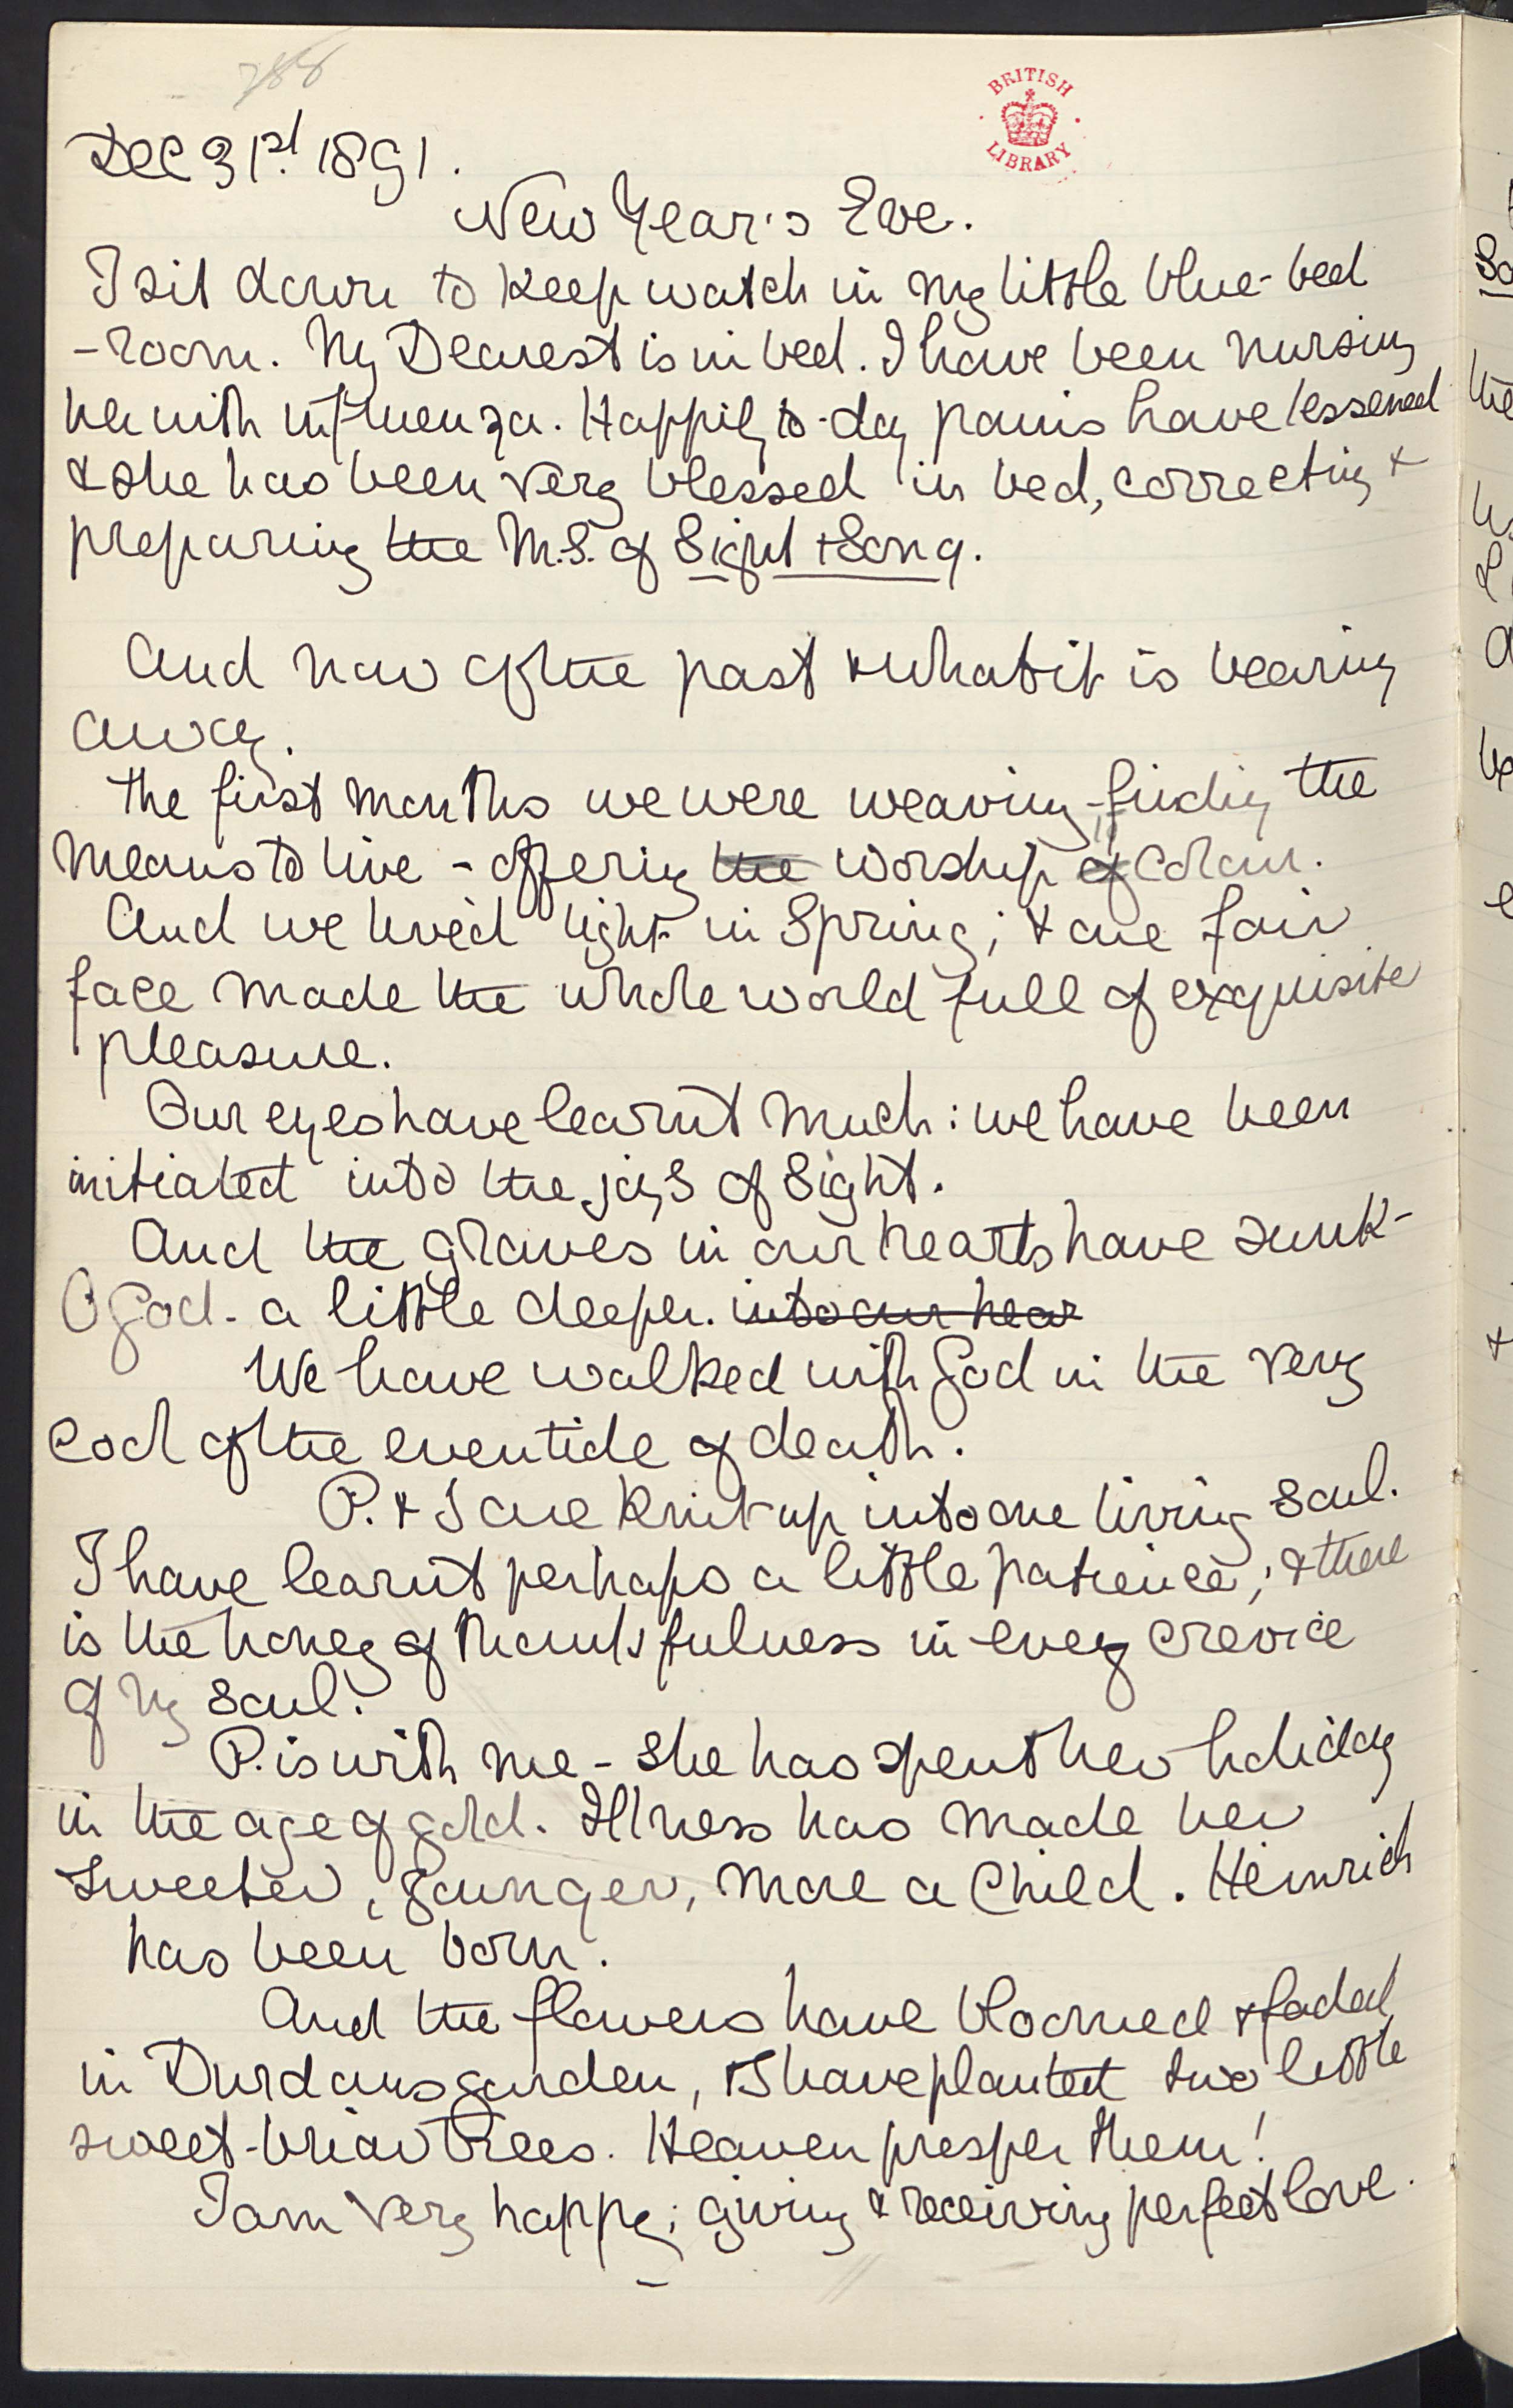 788
BRITISH LIBRARY
Dec 31st. 1891.
New Year's Eve.
I sit down to keep watch in my little blue-bed
-room. My Dearest is in bed. I have been nursing
her with influenza. Happily to-day pains have lessened
& she has been very blessed in bed, correcting &
preparing the M.S. of Sight & Song.
And now of the past & what it is bearing
away.
The first months we were weaving - finding the
means to live - offering the worship of colour.
And we lived light in Spring; & one fair
face made the whole world full of exquisite
pleasure.
Our eyes have learnt much: we have been
initiated into the joys of Sight.
And the graves in our hearts have sunk -
O God - a little deeper. into our hear
We have walked with God in the very
cool of the eventide of death.
P. & I are knit-up into one living soul.
I have learnt perhaps a little patience; & there
is the honey of thankfulness in every crevice
of my soul.
P. is with me - she has spent her holiday
in the age of gold. Illness has made her
sweeter, younger, more a Child. Heinrich
has been born.
And the flowers have bloomed & faded
in Durdans garden, & I have planted two little
sweet-briar trees. Heaven prosper them!
I am very happy; giving & receiving perfect love.